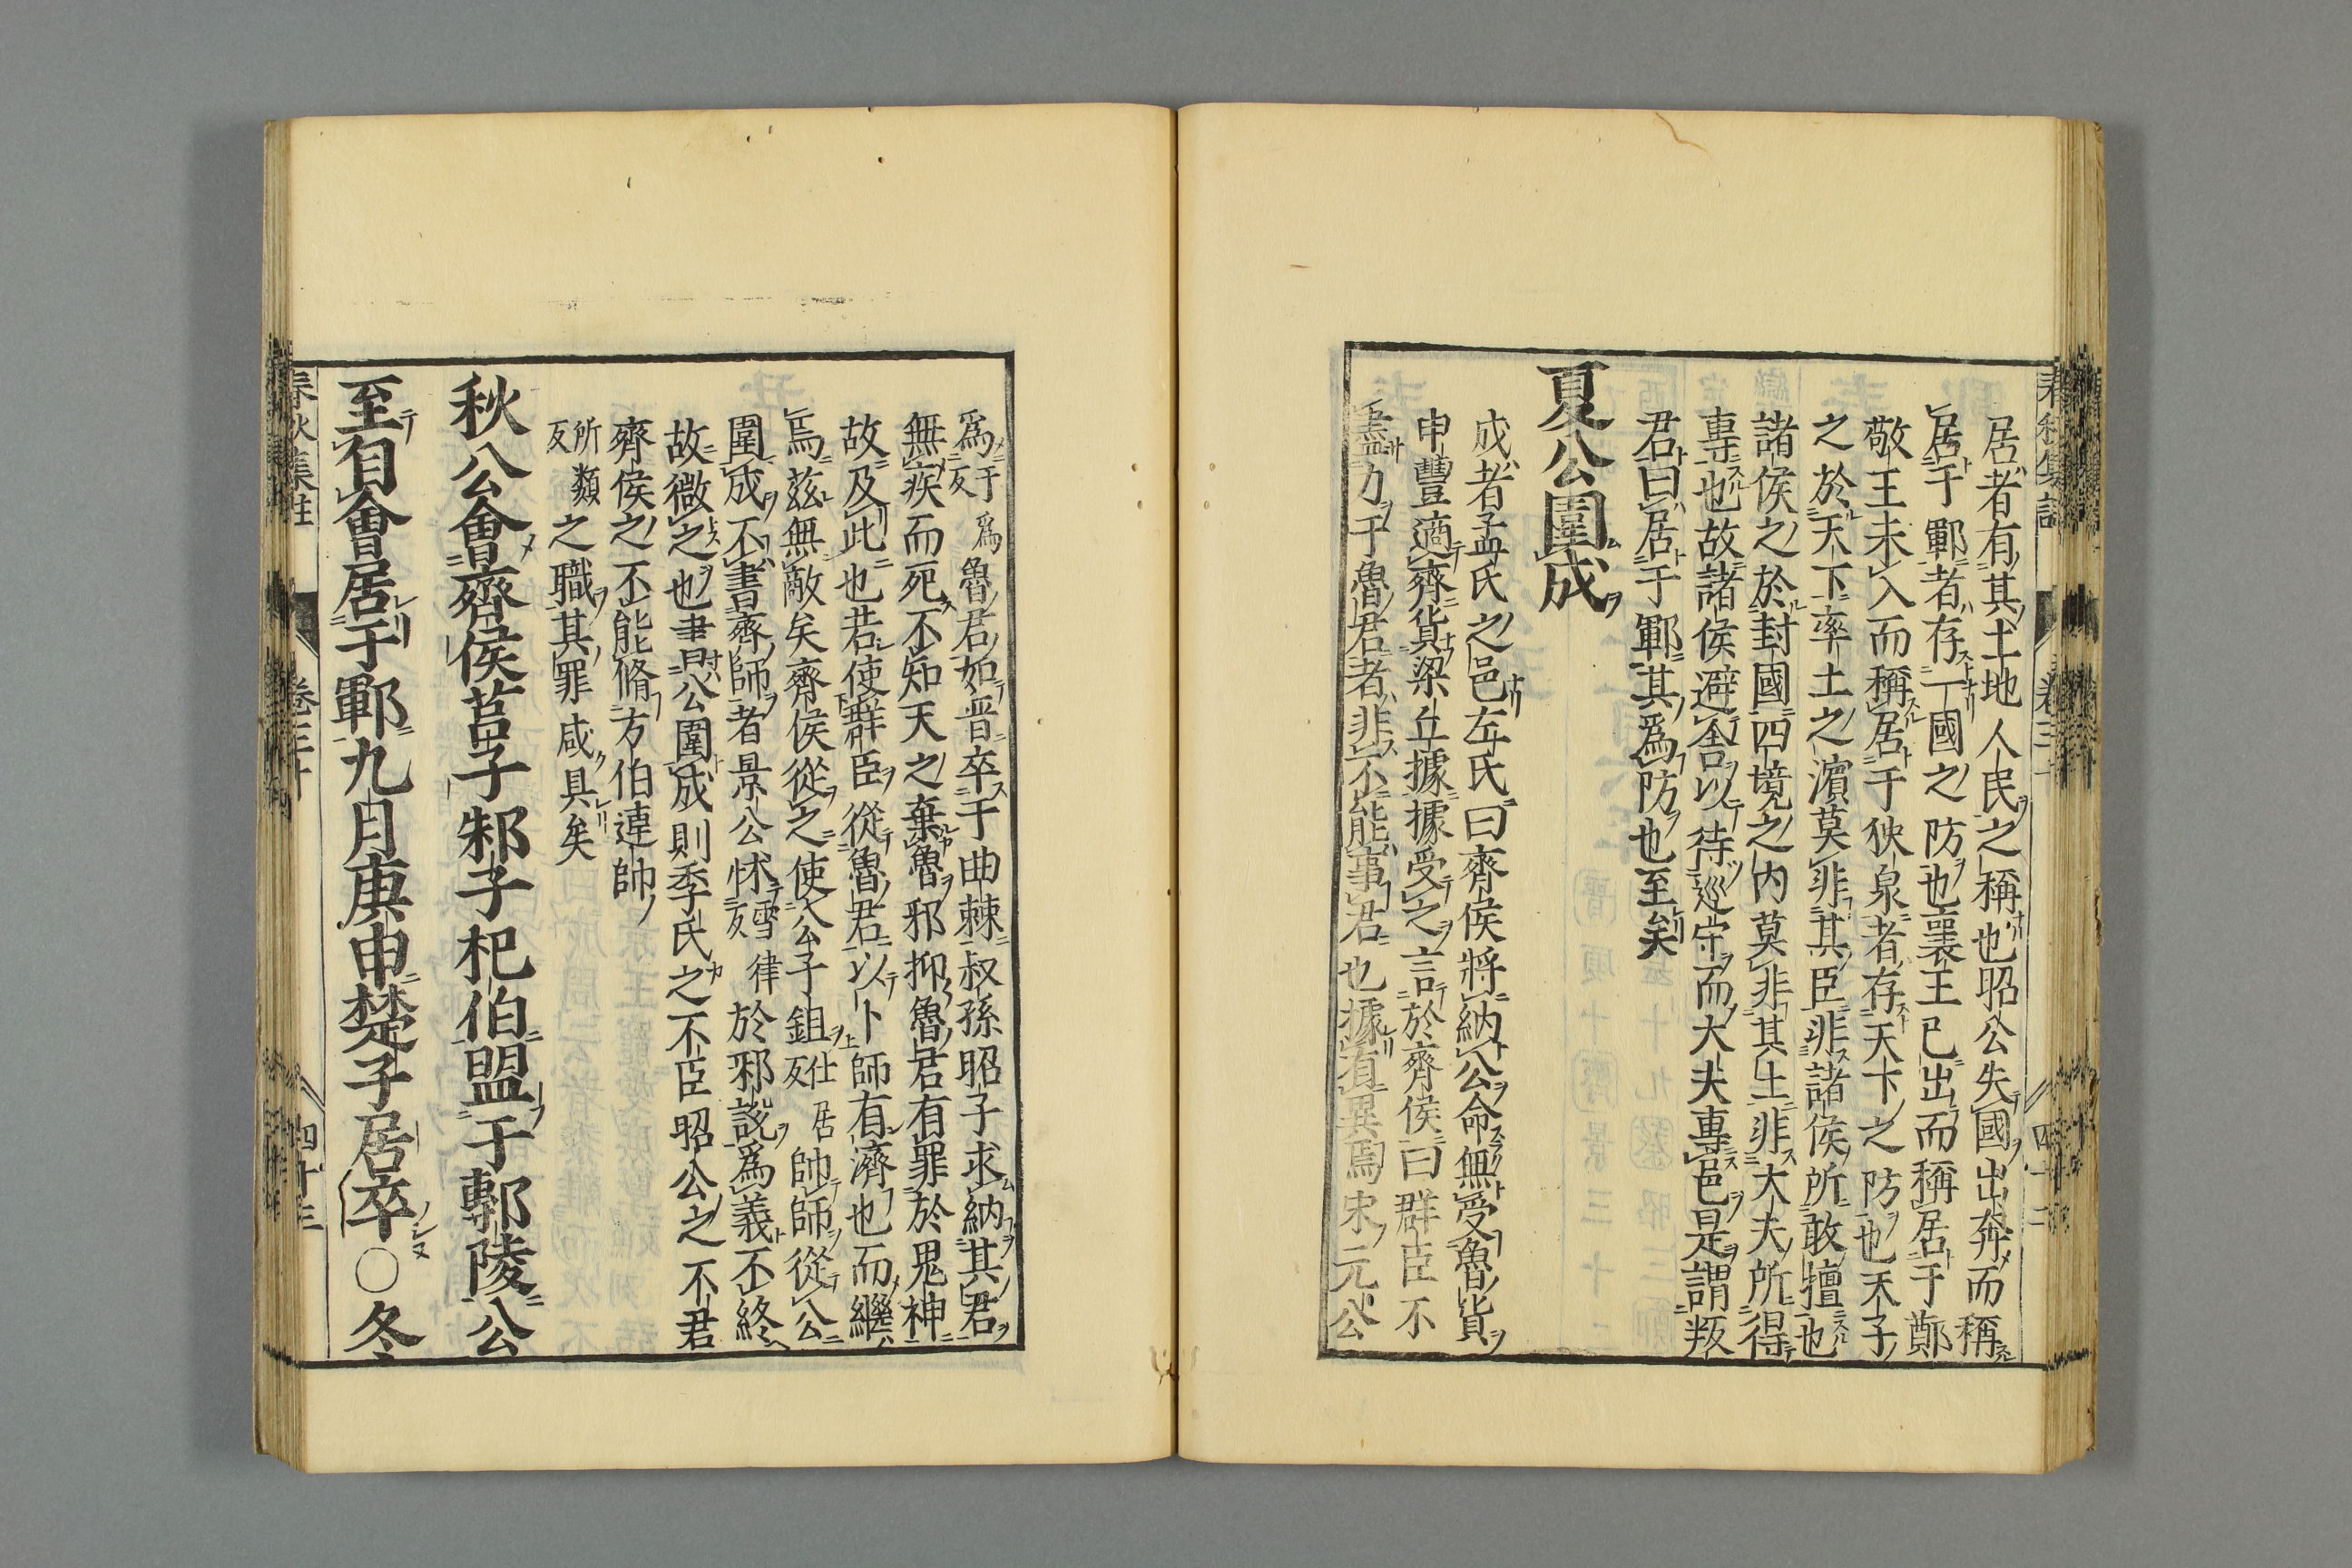 居者有其土地人民之稱也昭公失國出奔而稱
居于鄆者存一國之防也襄王已出而稱居于鄭
敬王未入而稱居于狄泉者存天下之防也天子
之於天下率土之濱莫非其臣非諸侯所敢擅也
諸侯之於封國四境之內莫非其土非大夫所得
專也故諸侯避舍以待巡守而大夫專邑是謂叛
君曰居于鄆其爲防也至矣
夏公圍成
成者孟氏之邑左氏曰齊侯將納公命無受魯貨
申豐適齊貨梁丘據據受之言於齊侯曰群臣不
盡力于魯君者非不能事君也據有異焉宋元公
爲于反爲魯君如晋卒于曲棘叔孫昭子求納其君
無疾而死不知天之棄魯邪抑魯君有罪於鬼神
故及此也若使群臣從魯君以卜師有濟也而繼
焉茲無敵矣齊侯從之使公子鉏仕居反帥師從公
圍成不書齊師者景公怵雪律反於邪説爲義不終
故微之也書公圍成則季氏之不臣昭公之不君
齊侯之不能脩方伯連帥
所類反之職其罪咸具矣
秋公會齊侯莒子邾子杞伯盟于鄟陵公
至自會居于鄆九月庚申楚子居卒〇冬
春秋集註 卷三十 四十三